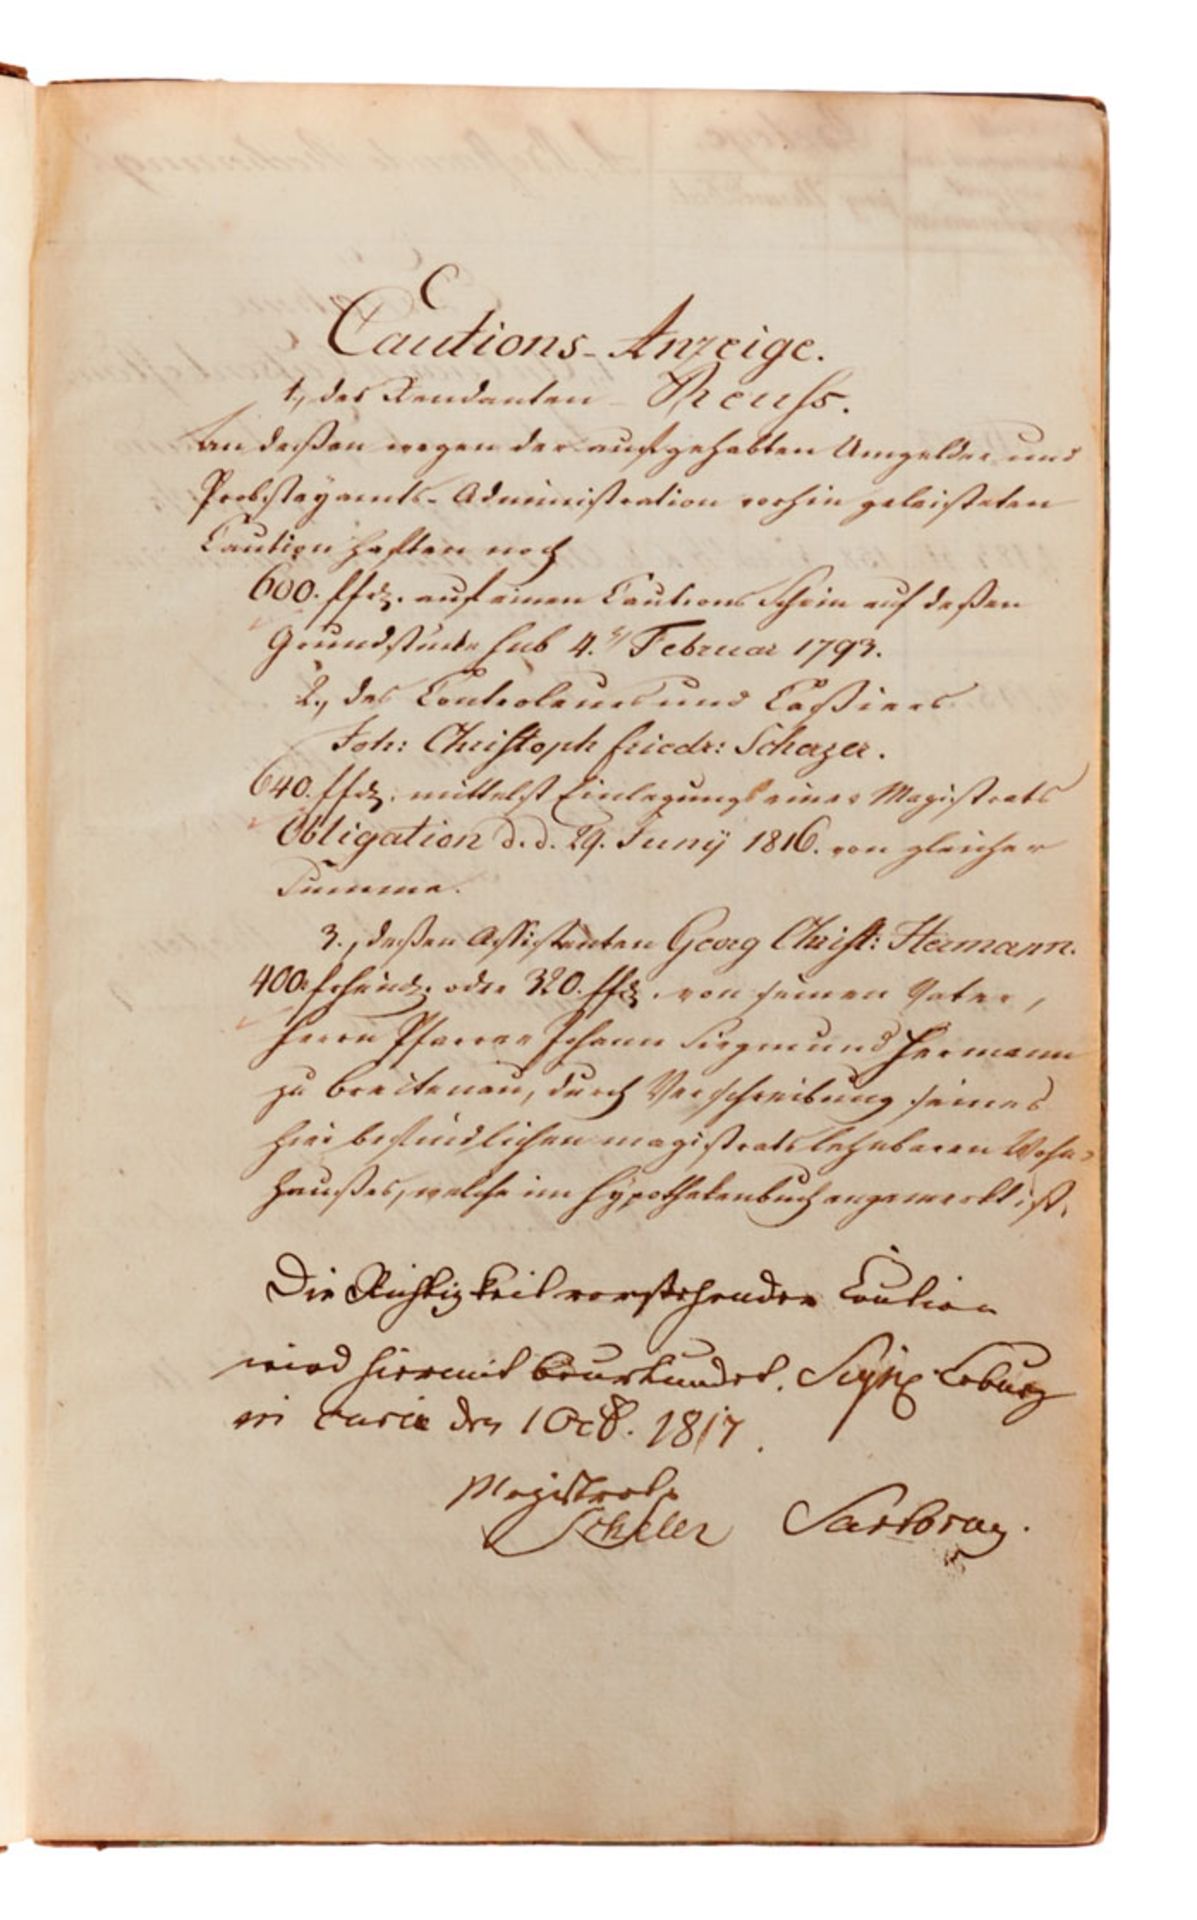 Cautions-Anzeige.
1., des Rendanten Reuß.
An deßen wegen der aufgehabten Umgelder und
Probsteyamts-Administration vorhin geleisteten
Caution haften noch
600. auf einen Cautions Schein auf deßen
Grundstücke sub 4. Februar 1793.
2., des Controleurs und Caßiers
Joh: Christoph Friedr: Scherzer.
640. mittelst Einlegung einer Magistrats
Obligation d. d. 29. Junÿ 1816. von gleicher
Summe.
3., deßen Assistenten Georg Christ: Hermann.
400 oder 320. von seinen Vater,
Herrn Pfarrer Johann Siegmund Hermann
zu Breitenau, durch Verschreibung seines
hier befindlichen magistratslehnbaren Wohn-
haußes, welche im Hÿpothekenbuch angemerkt ist.
Die Richtigkeit vorstehender Caution
wird hiermit beurkundet. Coburg
in curia den 1 Oct. 1817.
Magistrat